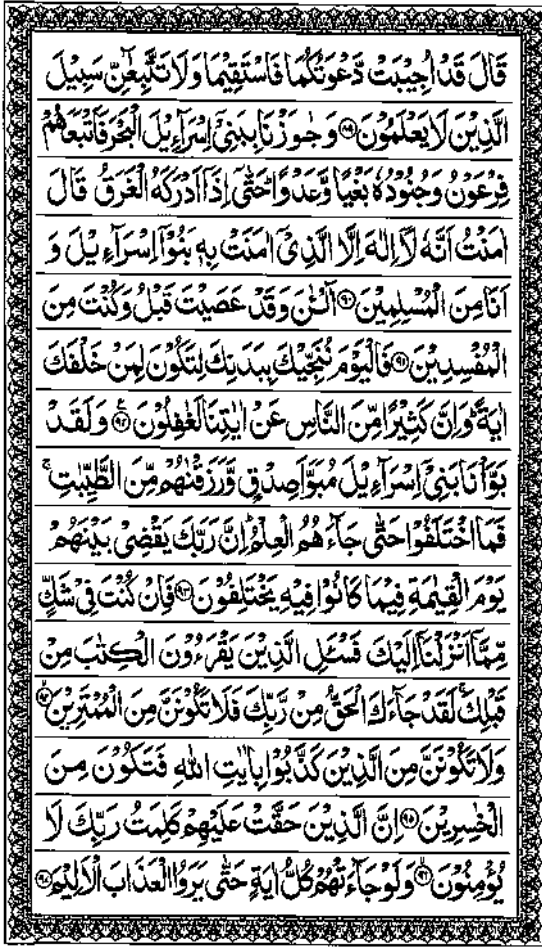 قَالَ قَدْ اُجِيْبَتْ دَّعْوَتُكُمَا فَاسْتَقِيْمَا وَلَا تَتَّبِعٰٓنِّ سَبِيْلَ
الَّذِيْنَ لَا يَعْلَمُوْنَ ﴿۸۹﴾ وَجٰوَزْنَا بِبَنِيْٓ اِسْرَآءِيْلَ الْبَحْرَ فَاَتْبَعَهُمْ
فِرْعَوْنُ وَجُنُوْدُهٗ بَغْيًا وَّعَدْوًا ؕ حَتّٰٓى اِذَاۤ اَدْرَكَهُ الْغَرَقُ قَالَ
اٰمَنْتُ اَنَّهٗ لَاۤ اِلٰهَ اِلَّا الَّذِيْٓ اٰمَنَتْ بِهٖ بَنُوْۤا اِسْرَآءِيْلَ وَ
اَنَا مِنَ الْمُسْلِمِيْنَ ﴿۹۰﴾ آٰلْـٰٔنَ وَقَدْ عَصَيْتَ قَبْلُ وَكُنْتَ مِنَ
الْمُفْسِدِيْنَ ﴿۹۱﴾ فَالْيَوْمَ نُنَجِّيْكَ بِبَدَنِكَ لِتَكُوْنَ لِمَنْ خَلْفَكَ
اٰيَةً ؕ وَاِنَّ كَثِيْرًا مِّنَ النَّاسِ عَنْ اٰيٰتِنَا لَغٰفِلُوْنَ ﴿۹۲﴾ ع وَلَقَدْ
بَوَّاْنَا بَنِيْٓ اِسْرَآءِيْلَ مُبَوَّاَ صِدْقٍ وَّرَزَقْنٰهُمْ مِّنَ الطَّيِّبٰتِ ۚ
فَمَا اخْتَلَفُوْا حَتّٰى جَآءَهُمُ الْعِلْمُ ؕ اِنَّ رَبَّكَ يَقْضِيْ بَيْنَهُمْ
يَوْمَ الْقِيٰمَةِ فِيْمَا كَانُوْا فِيْهِ يَخْتَلِفُوْنَ ﴿۹۳﴾ فَاِنْ كُنْتَ فِيْ شَكٍّ
مِّمَّاۤ اَنْزَلْنَاۤ اِلَيْكَ فَسْـَٔلِ الَّذِيْنَ يَقْرَءُوْنَ الْكِتٰبَ مِنْ
قَبْلِكَ ۚ لَقَدْ جَآءَكَ الْحَقُّ مِنْ رَّبِّكَ فَلَا تَكُوْنَنَّ مِنَ الْمُمْتَرِيْنَ ﴿۹۴﴾ ۙ
وَلَا تَكُوْنَنَّ مِنَ الَّذِيْنَ كَذَّبُوْا بِاٰيٰتِ اللّٰهِ فَتَكُوْنَ مِنَ
الْخٰسِرِيْنَ ﴿۹۵﴾ اِنَّ الَّذِيْنَ حَقَّتْ عَلَيْهِمْ كَلِمَتُ رَبِّكَ لَا
يُؤْمِنُوْنَ ﴿۹۶﴾ ۙ وَلَوْ جَآءَتْهُمْ كُلُّ اٰيَةٍ حَتّٰى يَرَوُا الْعَذَابَ الْاَلِيْمَ ﴿۹۷﴾